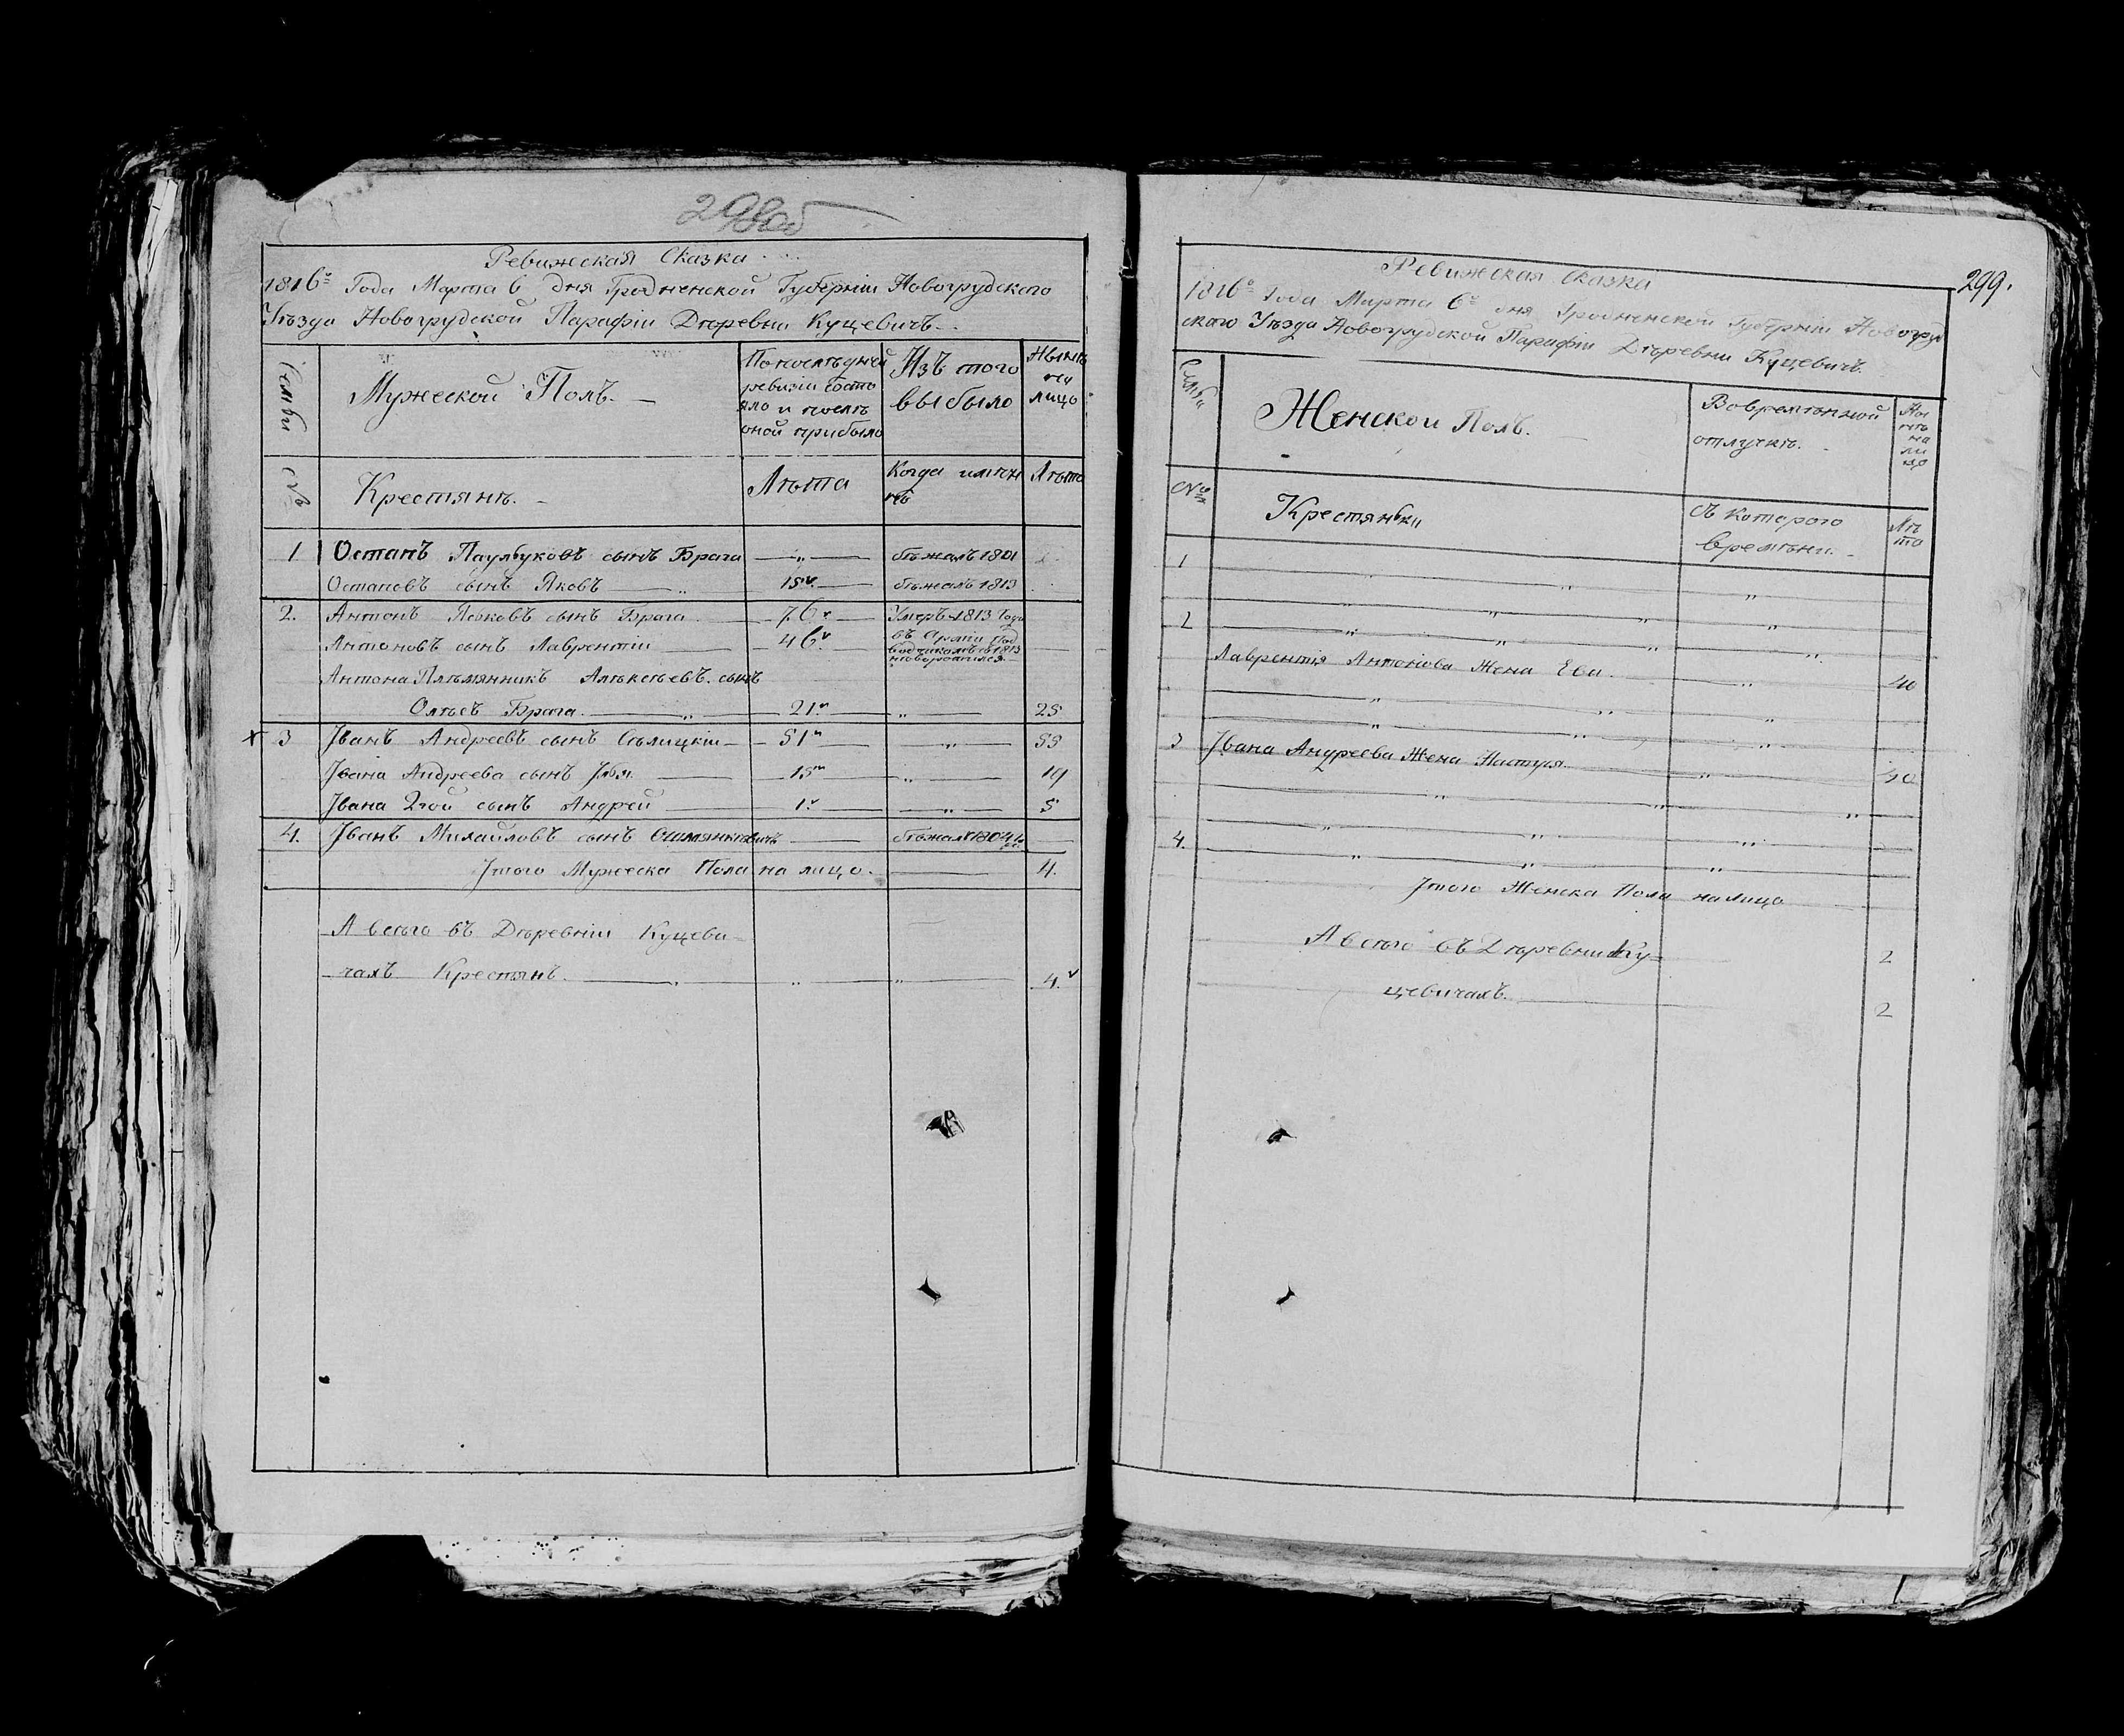 298об
Ревижеская Сказка
1816го Года Марта 6 дня Гродненской Губерніи Новогрудского
Уѣзда Новогрудской Парафіи Дѣревни Куцевичъ
Семьи
Мужеской Полъ.
Попослѣдней
ревизіи состо
яло и послѣ
оной прибыло
Изъ того
выбыло
Нынѣ
на
лицо
№
Крестянѣ.
Лѣта
Когда имѣн
но
Лѣта
1 Остапъ сынъ Брага — „ — бѣжалъ 1801
Остаповъ сынъ Яковъ — „ 15 бѣжалъ 1813
2. Антонъ сынъ Брага 76 Умеръ 1813 Года
Антоновъ сынъ Лаврентій 46 въ 1813
Антона Плѣмянникъ Алѣксѣевъ сынъ
Брага — „ — 21 „ 25
3 Іванъ Андреевъ сынъ 51 „ 55
Івана Андреева сынъ 15 „ 19
Івана 2гой сынъ Андрей 1 „ 5
4. Іванъ Михайловъ сынъ бѣжалъ
Ітого Мужеска Пола на лицо. 4.
А всѣго въ Дѣревніи Куцеви-
чахъ Крестянъ. „ „ „ 4.
299.
Ревижеская Сказка
1816го Года Марта 6го дня Гродненской Губерніи Новогруд
ского Уѣзда Новогрудской Парафіи Дѣревни Куцевичъ.
Семьи
Женской Полъ.
Вовремѣнной
отлучкѣ.
Ны
нѣ
на
ли
цо
№
Крестянки
Съ которого
времѣни.
Лѣ
та
1 „ „
„ „ „
2 „ „ „ „
Лаврентія Антонова Жена Ева. „ 40
„ „ „
„ „ „
3 Івана Андреева Жена Настуся „ 40
„ „ „
„ „ „
4. „ „ „
Ітого Женска Пола на лицо
2
А всѣго въ Дѣревни Ку=
цевичахъ.
2